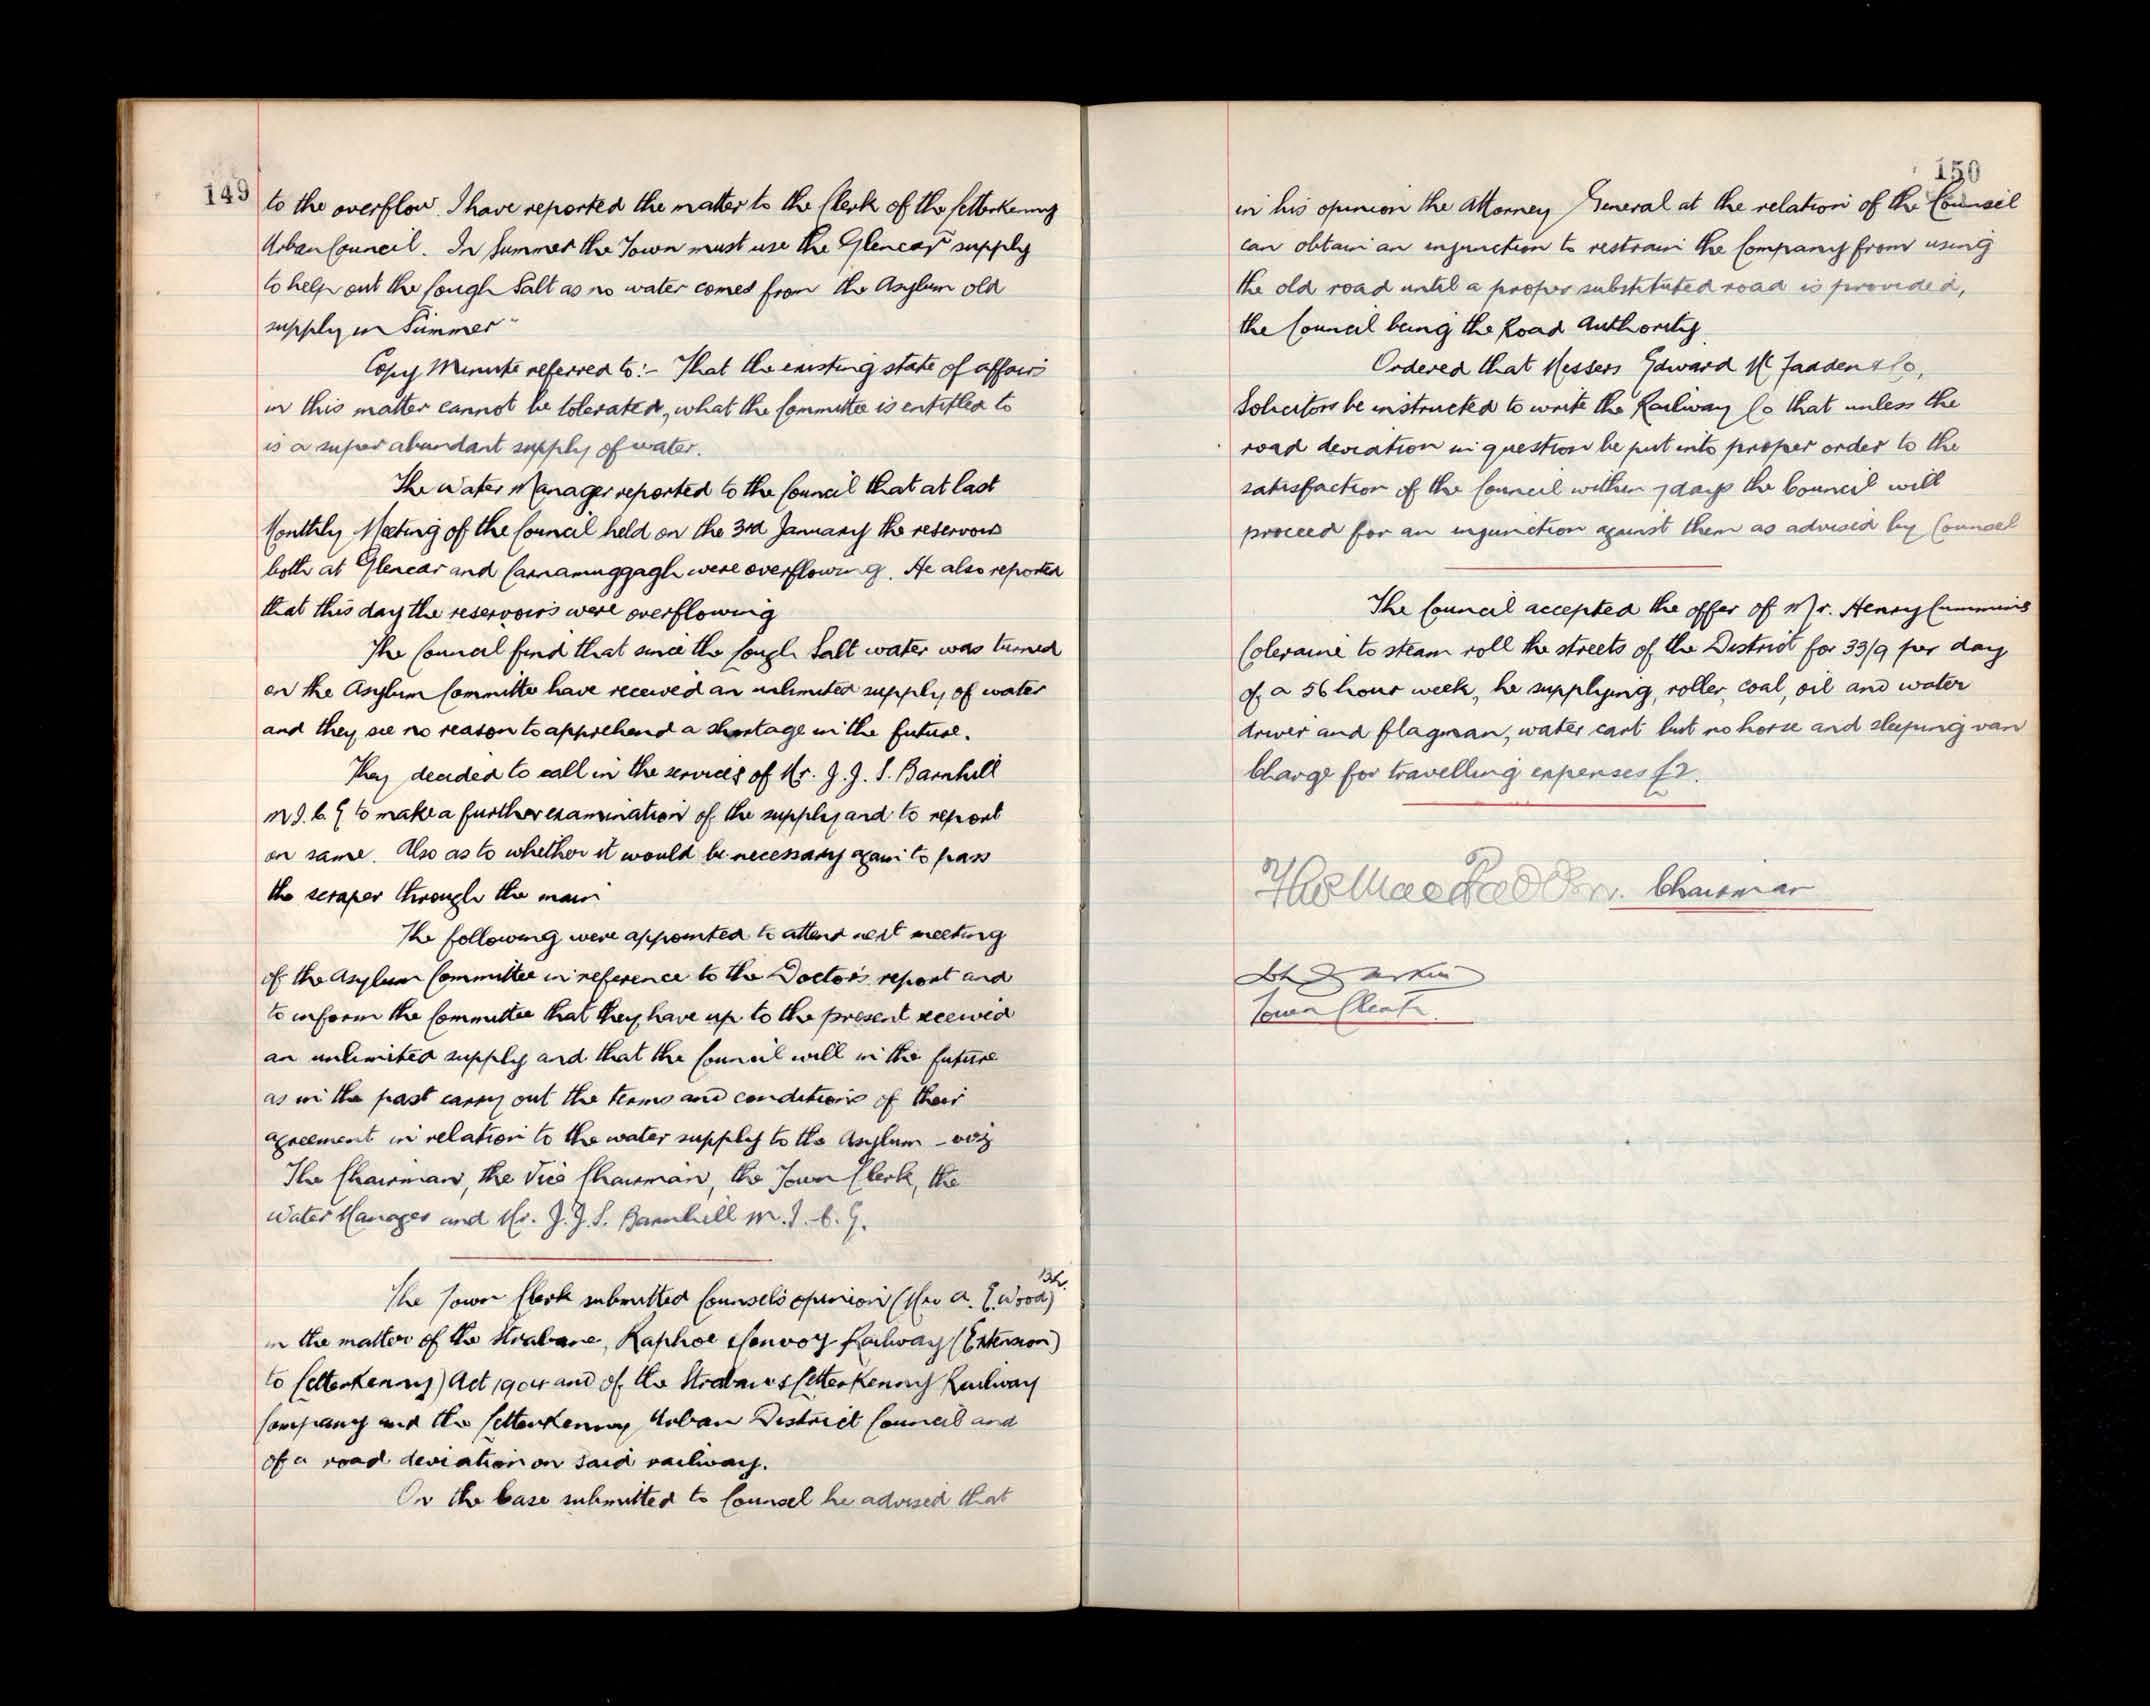 149
to the overflow. I have reported the matter to the Clerk of the Letterkenny
Urban Council. In Summer the Town must use the Glencar supply
to help out the Lough Salt as no water comes from the Asylum old
supply in Summer"
Copy Minute referred to:- That the existing state of affairs
in this matter cannot be tolerated, what the Committee is entitled to
is a super abundant supply of water.
The Water Manager reported to the Council that at last
Monthly Meeting of the Council held on the 3rd January the reservoirs
both at Glencar and Carnamuggagh were overflowing. He also reported
that this day the reservoirs were overflowing
The Council find that since the Lough Salt water was turned
on the Asylum Committee have received an unlimited supply of water
and they see no reason to apprehend a shortage in the future.
They decided to call in the services of Mr. J. J. S. Barnhill
M I. C. E to make a further examination of the supply and to report
on same. Also as to whether it would be necessary again to pass
the scraper through the main
The following were appointed to attend next meeting
of the Asylum Committee in reference to the Doctor's report and
to inform the Committee that they have up to the present received
an unlimited supply and that the Council will in the future
as in the past carry out the terms and conditions of their
agreement in relation to the water supply to the Asylum - viz
The Chairman, the Vice Chairman, the Town Clerk, the
Water Manager and Mr. J. J. S. Barnhill M. I. C. E.
The Town Clerk submitted Counsel's opinion (Mr A. E. Wood)
in the matter of the Strabane, Raphoe & Convoy Railway (Extension)
to Letterkenny) Act 1904 and of the Strabane & Letterkenny Railway
Company and the Letterkenny Urban District Council and
of a road deviation on said railway.
On the Case submitted to Counsel he advised that
150
in his opinion the Attorney General at the relation of the Council
can obtain an injunction to restrain the Company from using
the old road until a proper substituted road is provided,
the Council being the Road Authority.
Ordered that Messers Edward Mc Fadden & Co,
Solicitors be instructed to write the Railway Co that unless the
road deviation in question be put into proper order to the
satisfaction of the Council within 7 days the Council will
proceed for an injunction against them as advised by Counsel
The Council accepted the offer of Mr. Henry Cummins
Coleraine to steam roll the streets of the District for 33/9 per day
of a 56 hour week, he supplying, roller, coal, oil and water
driver and flagman, water cart but no horse and sleeping van
Charge for travelling expenses £2.
Chairman
Town Clerk